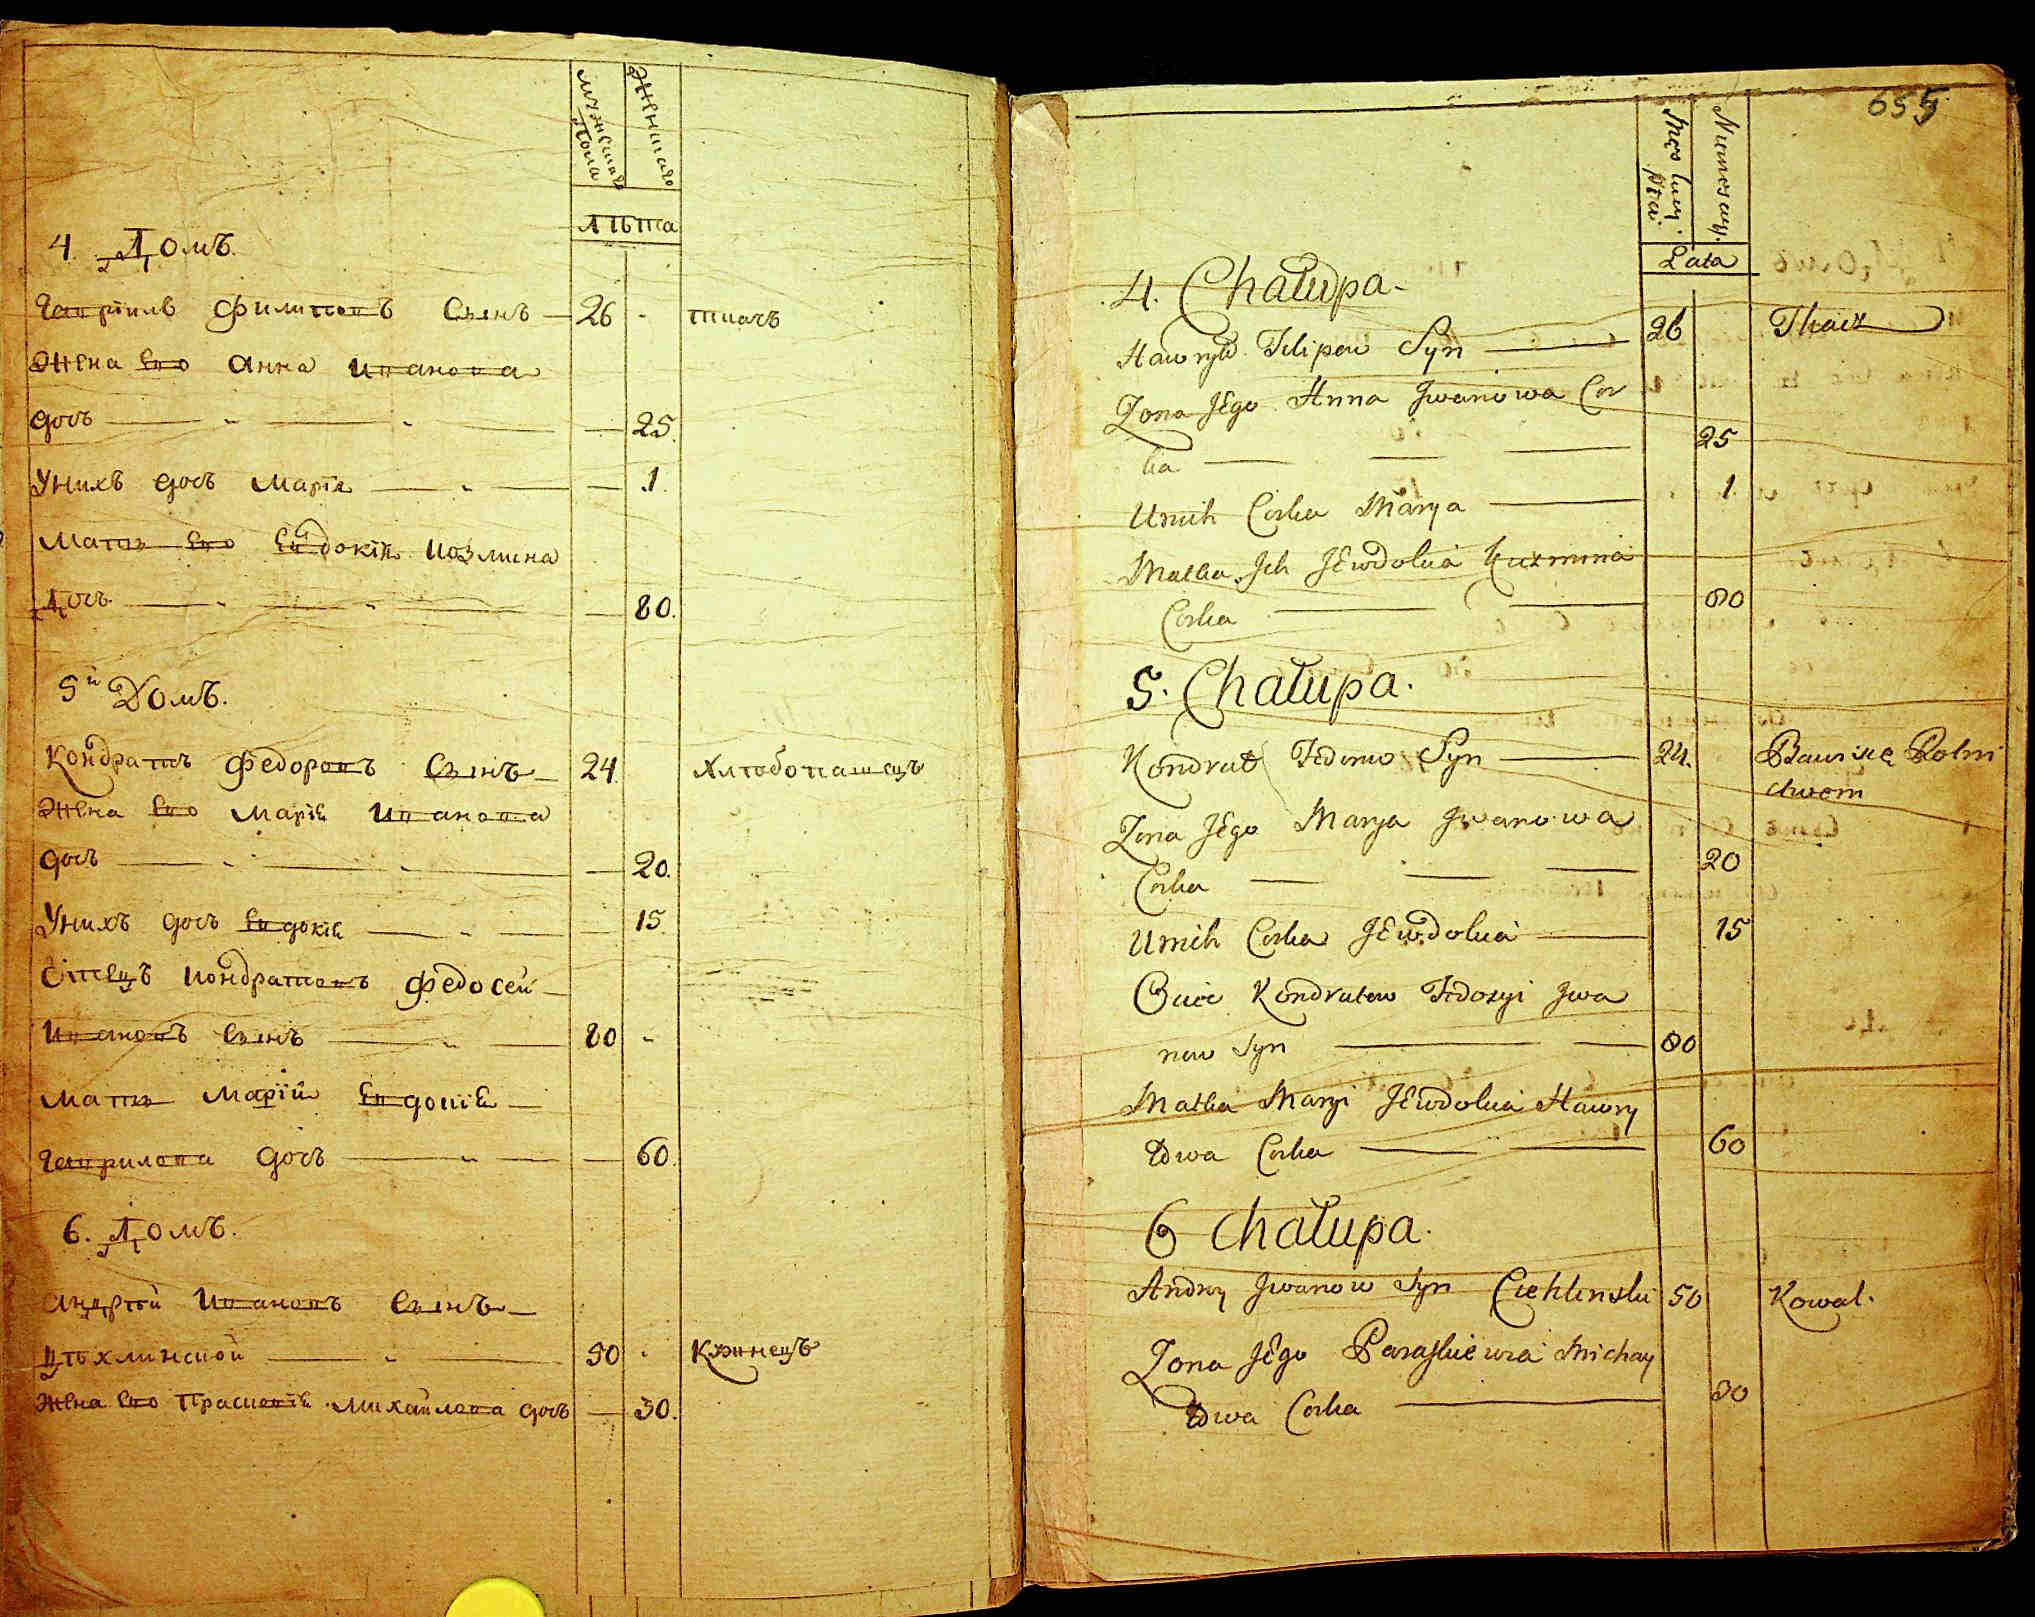 мужеска пола
женска
лѣта
4 Домъ.
Гавріилъ Филиповъ Сынъ — 26 - ткачъ
Жена Его Анна Иванова
дочъ — 25.
Унихъ дочъ Марія — 1.
Мать Его Евдокія Козмина
Дочъ — 80.
5й Домъ.
Кондратъ Федоровъ Сынъ — 24. Хлѣбопашецъ
Жена Его Марія Иванова
дочъ — 20.
Унихъ дочъ Евдокія — 15
Отецъ Кондратовъ Федосей —
Ивановъ Сынъ — 80 -
Мать Маріи Евдокія —
Гаврилова дочъ — 60.
6. Домъ.
Андрѣй Ивановъ Сынъ —
Цѣхлинской — 50 - Кузнецъ
Жена Его Прасковія Михайлова дочъ — 30.
655
Męs kiey płci.
Niewesciey.
Lata
4. Chałupa.
Hawryło Filipow Syn — 26 Tkacz
Zona Jego Anna Jwanowa Cor
ka — 25
Unich Corka Marya — 1
Matka Jch JEwdokia Kuzmina
Corka — 80
5. Chałupa.
Kondrat Fedorow Syn — 24. Bawi się Rolni
ctwem
Zona Jego Marya Jwanowa
Corka — 20
Unich Corka JEwdokia — 15
Oyciec Kondratow Fedosyi Jwa
now Syn — 80
Matka Maryi JEwdokia Hawry
łowa Corka — 60
6 Chałupa.
Andry Jwanow Syn Ciehlinski 50 Kowal.
Zona Jego Paraskiewia Michay
łowa Corka — 30